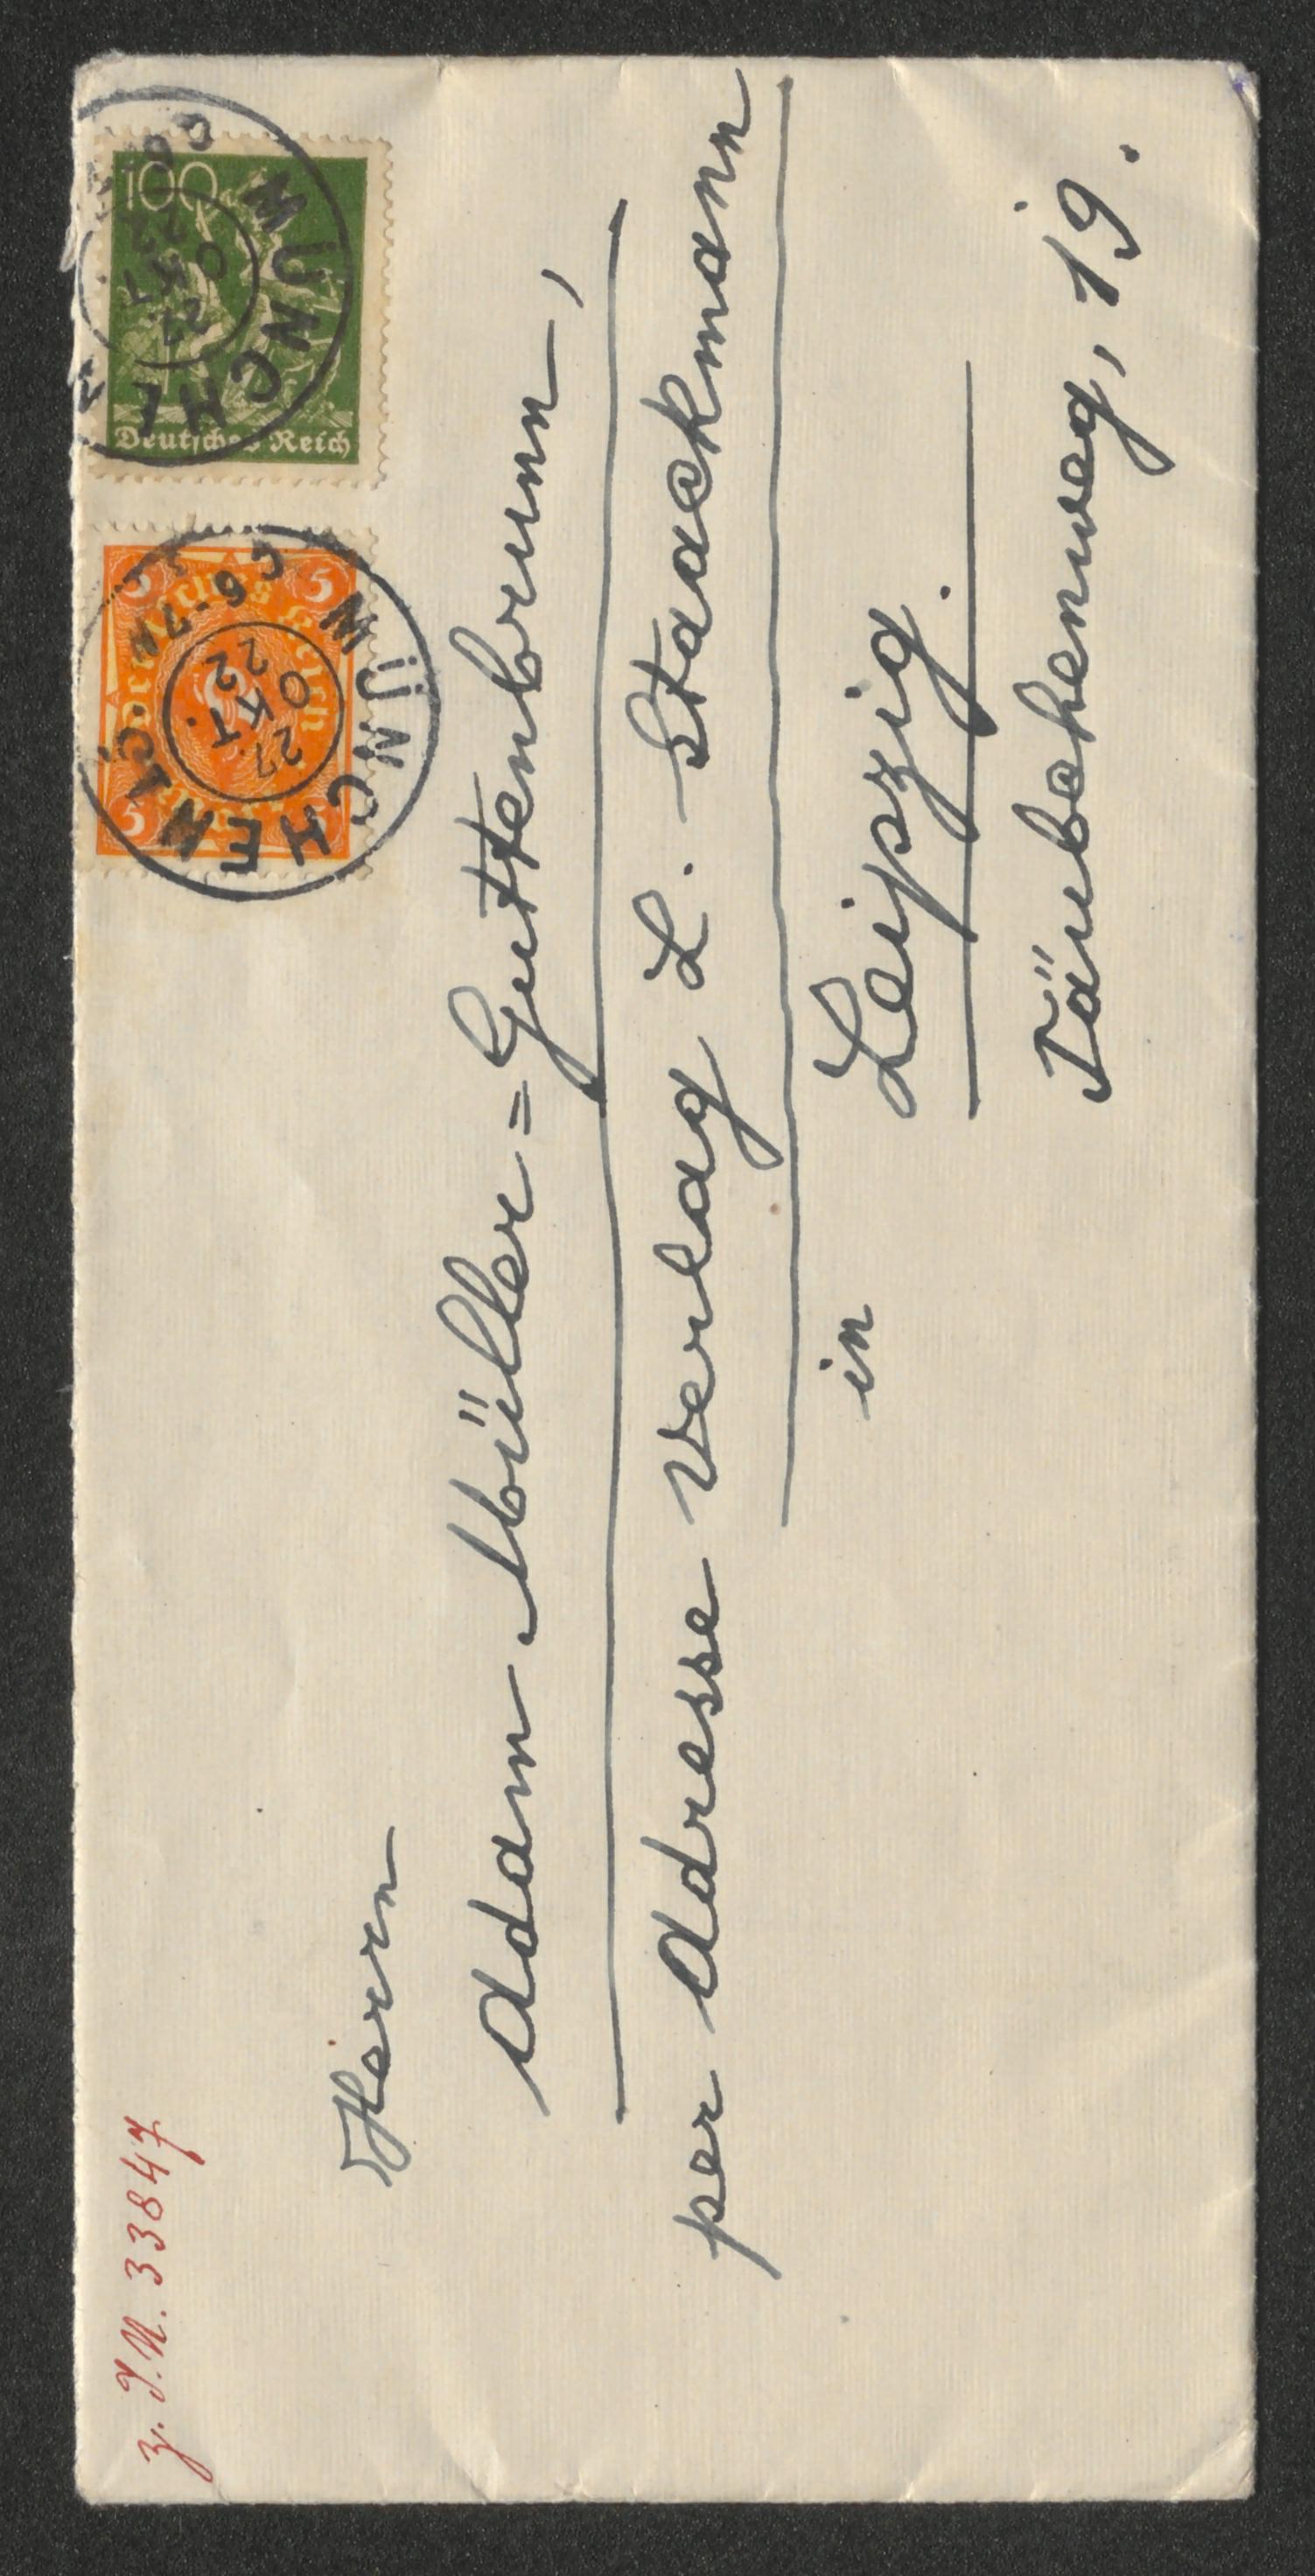 z. I.N. 33847
100
Deutsches Reich
MÜNCHEN
27
OKT.
22
5 5
Deutsches Reich
5
MÜNCHEN
6-7N
27
OKT.
22
Herrn
Adam Müller=Guttenbrunn,
per Adresse Verlag L. Staackmann
in Leipzig.
Täubchenweg, 19.